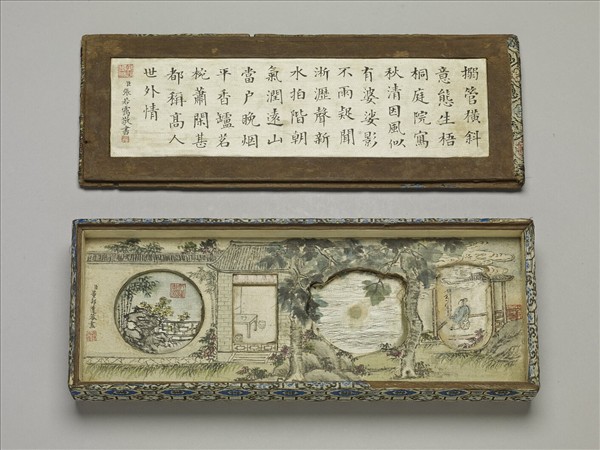 搦管橫斜
意態生梧
桐庭院寫
秋清因風似
有婆娑影
不雨疑聞
淅瀝聲新
水拍階朝
氣潤遠山
當戶晚烟
平香罏茗
椀蕭閑甚
都稱髙人
世外情
臣張若靄敬書
臣董邦達恭畫